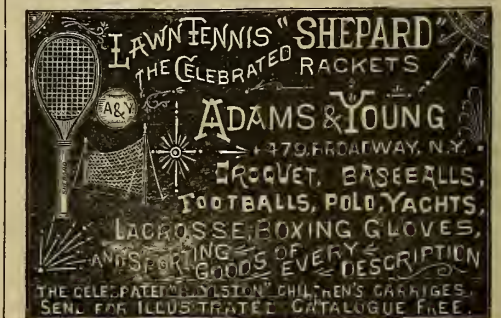 LAWN TENNIS "SHEPARD"
THE CELEBRATED RACKETS
A&Y
ADAMS & YOUNG
479, BROADWAY, N.Y.
CROQUET, BASEBALLS,
FOOTBALLS, POLO, YACHTS,
LACROSSE, BOXING GLOVES,
AND SPORTING GOODS OF EVERY DESCRIPTION
THE CELEBRATED "BOYLSTON" CHILDREN'S CARRIGES.
SEND FOR ILLUSTRATED CATALOGUE FREE.